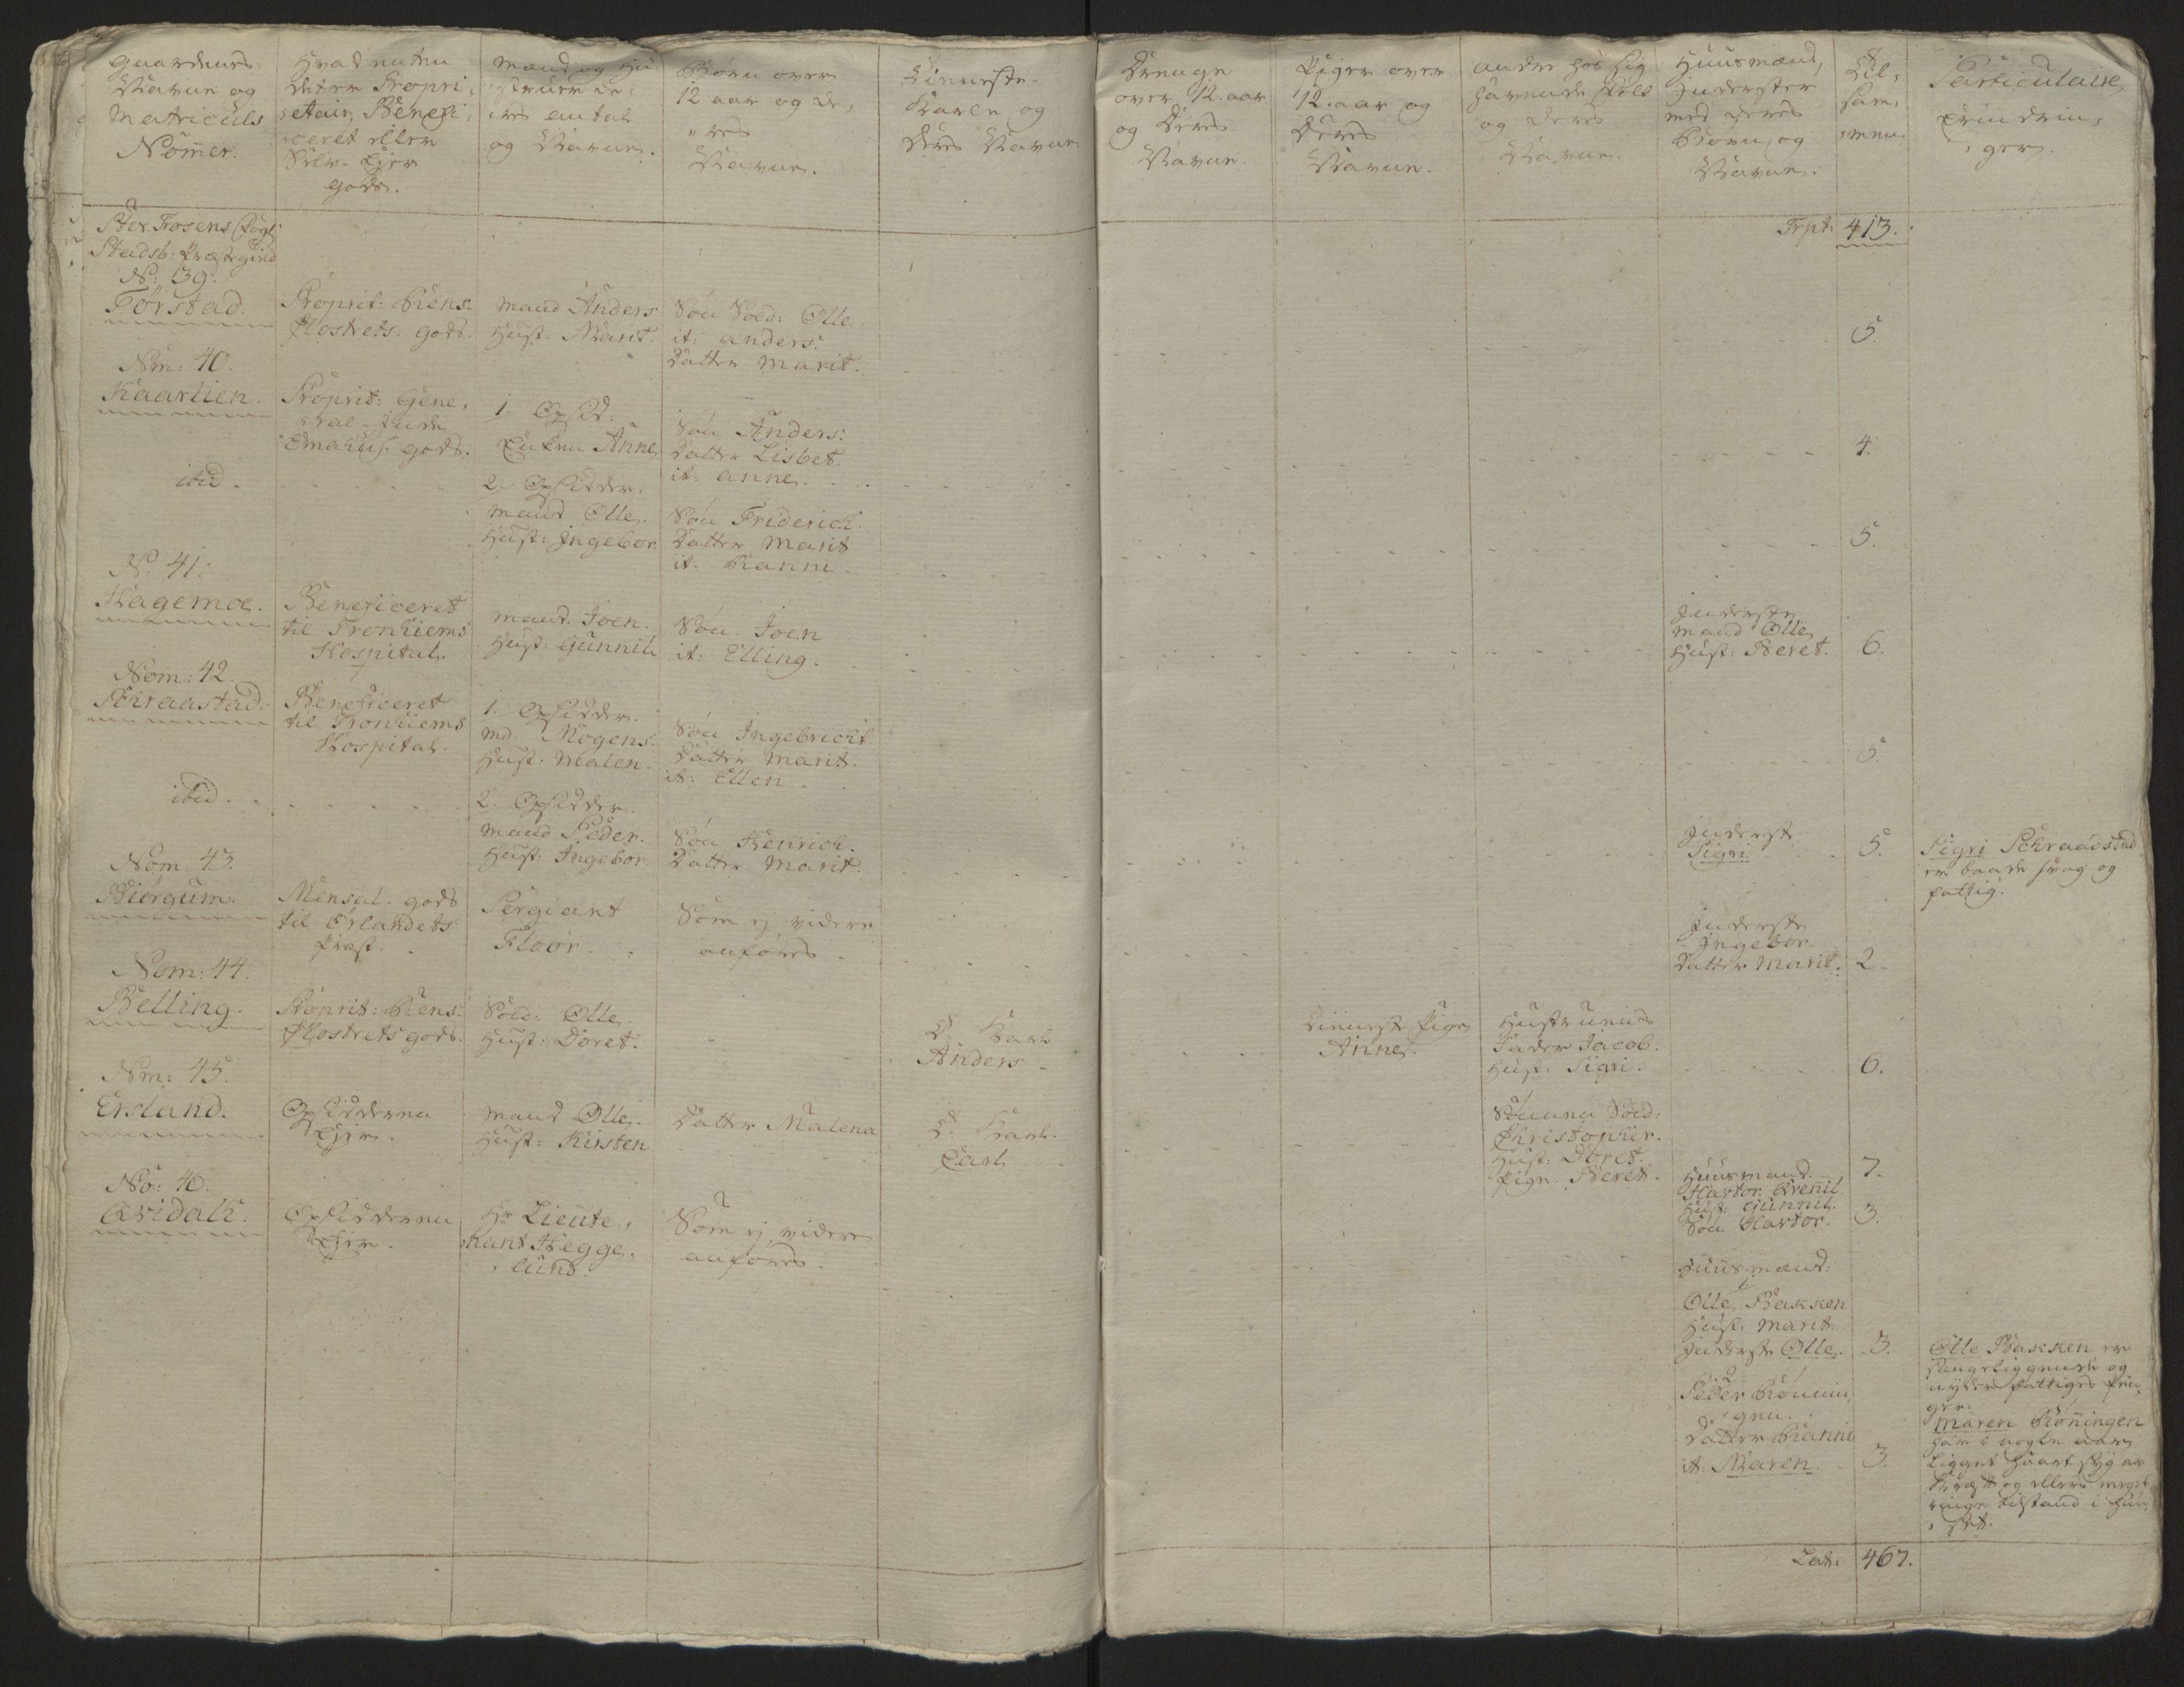 Gaardenes
Navne og
Matriculs
Nommer.
Hvad enten
det er Propri,
etair, Benefi,
ceret eller
Selv Ejer
gods.
Mænd og Hu
struer de,
res antal
og Navne.
Børn over
12 aar og de,
res
Navne.
Tieneste
Karle og
deres Navne
Drenge
over 12. aar
og deres
Navne.
Piger over
12. aar og
deres
Navne.
andre hos sig
havende Folk
og deres
Navne.
Huusmænd,
Inderster
med deres
Børn, og
Navne.
Til,
sam,
men.
Particulaire
Erindrin,
ger.
Stor Fosens Fogd:
Stadsb: Præstegield
Trpt: 413.
No: 39.
Forstad.
Proprit: Reins
Closters gods.
Mand Anders
Hust. Marit.
Søn Sold: Olle
it: anders.
Datter Marit.
5.
Nm: 40.
Kaarlien.
Proprit: Gene,
ral
gods.
1. Opsid:
Enken Anne
Søn Anders.
Datter Lisbet.
it: anne.
4.
ibid.
2. Opsidder.
Mand Olle.
Hust: Ingebor.
Søn Friderich.
Datter Marit
it: Ranni.
5.
No: 41.
Hagemoe.
Beneficeret
til Tronhiems
Hospital.
Mand. Joen.
Hust: Gunnil
Søn. Joen
it: Elling.
Inderste
Mand Olle
Hust: Beret.
6.
Nom: 42.
Schraastad.
Beneficeret
til Tronhiems
Hospital.
1. Opsidder.
Md: Mogens.
Hust. Malen.
Søn Ingebricht
Datter Marit.
it: Ellen
5.
ibid.
2. Opsidder.
Mand Peder.
Hust: Ingebor
Søn Henrich.
Datter Marit.
Inderste
Sigri
5.
Sigri Schraadstad
er baade svag og
fattig.
Nom: 43.
Biørgum.
Mensal-gods
til Ørlandets
Præst.
Sergiant
Floor.
Som ej videre
anføres.
Inderste
Ingebor
Datter Marit.
2.
Nom: 44.
Belling.
Proprit: Reins
Closters gods.
Sold: Olle.
Hust: Doret.
D. Karl
Anders
Tieneste Pige
Anne.
Hustruens
Fader Jacob.
Hust: Sigri.
6.
Nm: 45.
Ersland.
Opsidderen
Ejer.
Mand Olle.
Hust: Kirsten
Datter Malena
D. Karl.
Carl
Sønnen Sold:
Christopher.
Hust: Doret.
Pige Beret.
7.
No: 46.
Qvidahl.
Opsidderen
Ejer.
Hr Lieute,
nant Hegge,
lund.
Som ej videre
anføres.
Huusmand.
Hartor
Hust: Gunnil.
Søn Hartor.
3.
Huusmænd:
Olle Bakken
Hust: Marit.
Inderste Olle.
3.
Olle Bakken er
sengeliggende og
nyder fattiges Pen,
ge.
Peder Rønnin,
gen.
Datter Ranni
it: Maren.
3.
Maren Rønningen
har i nogle aar
ligget
og ellers meget
ringe tilstand i Huu,
set.
Lat: 467.